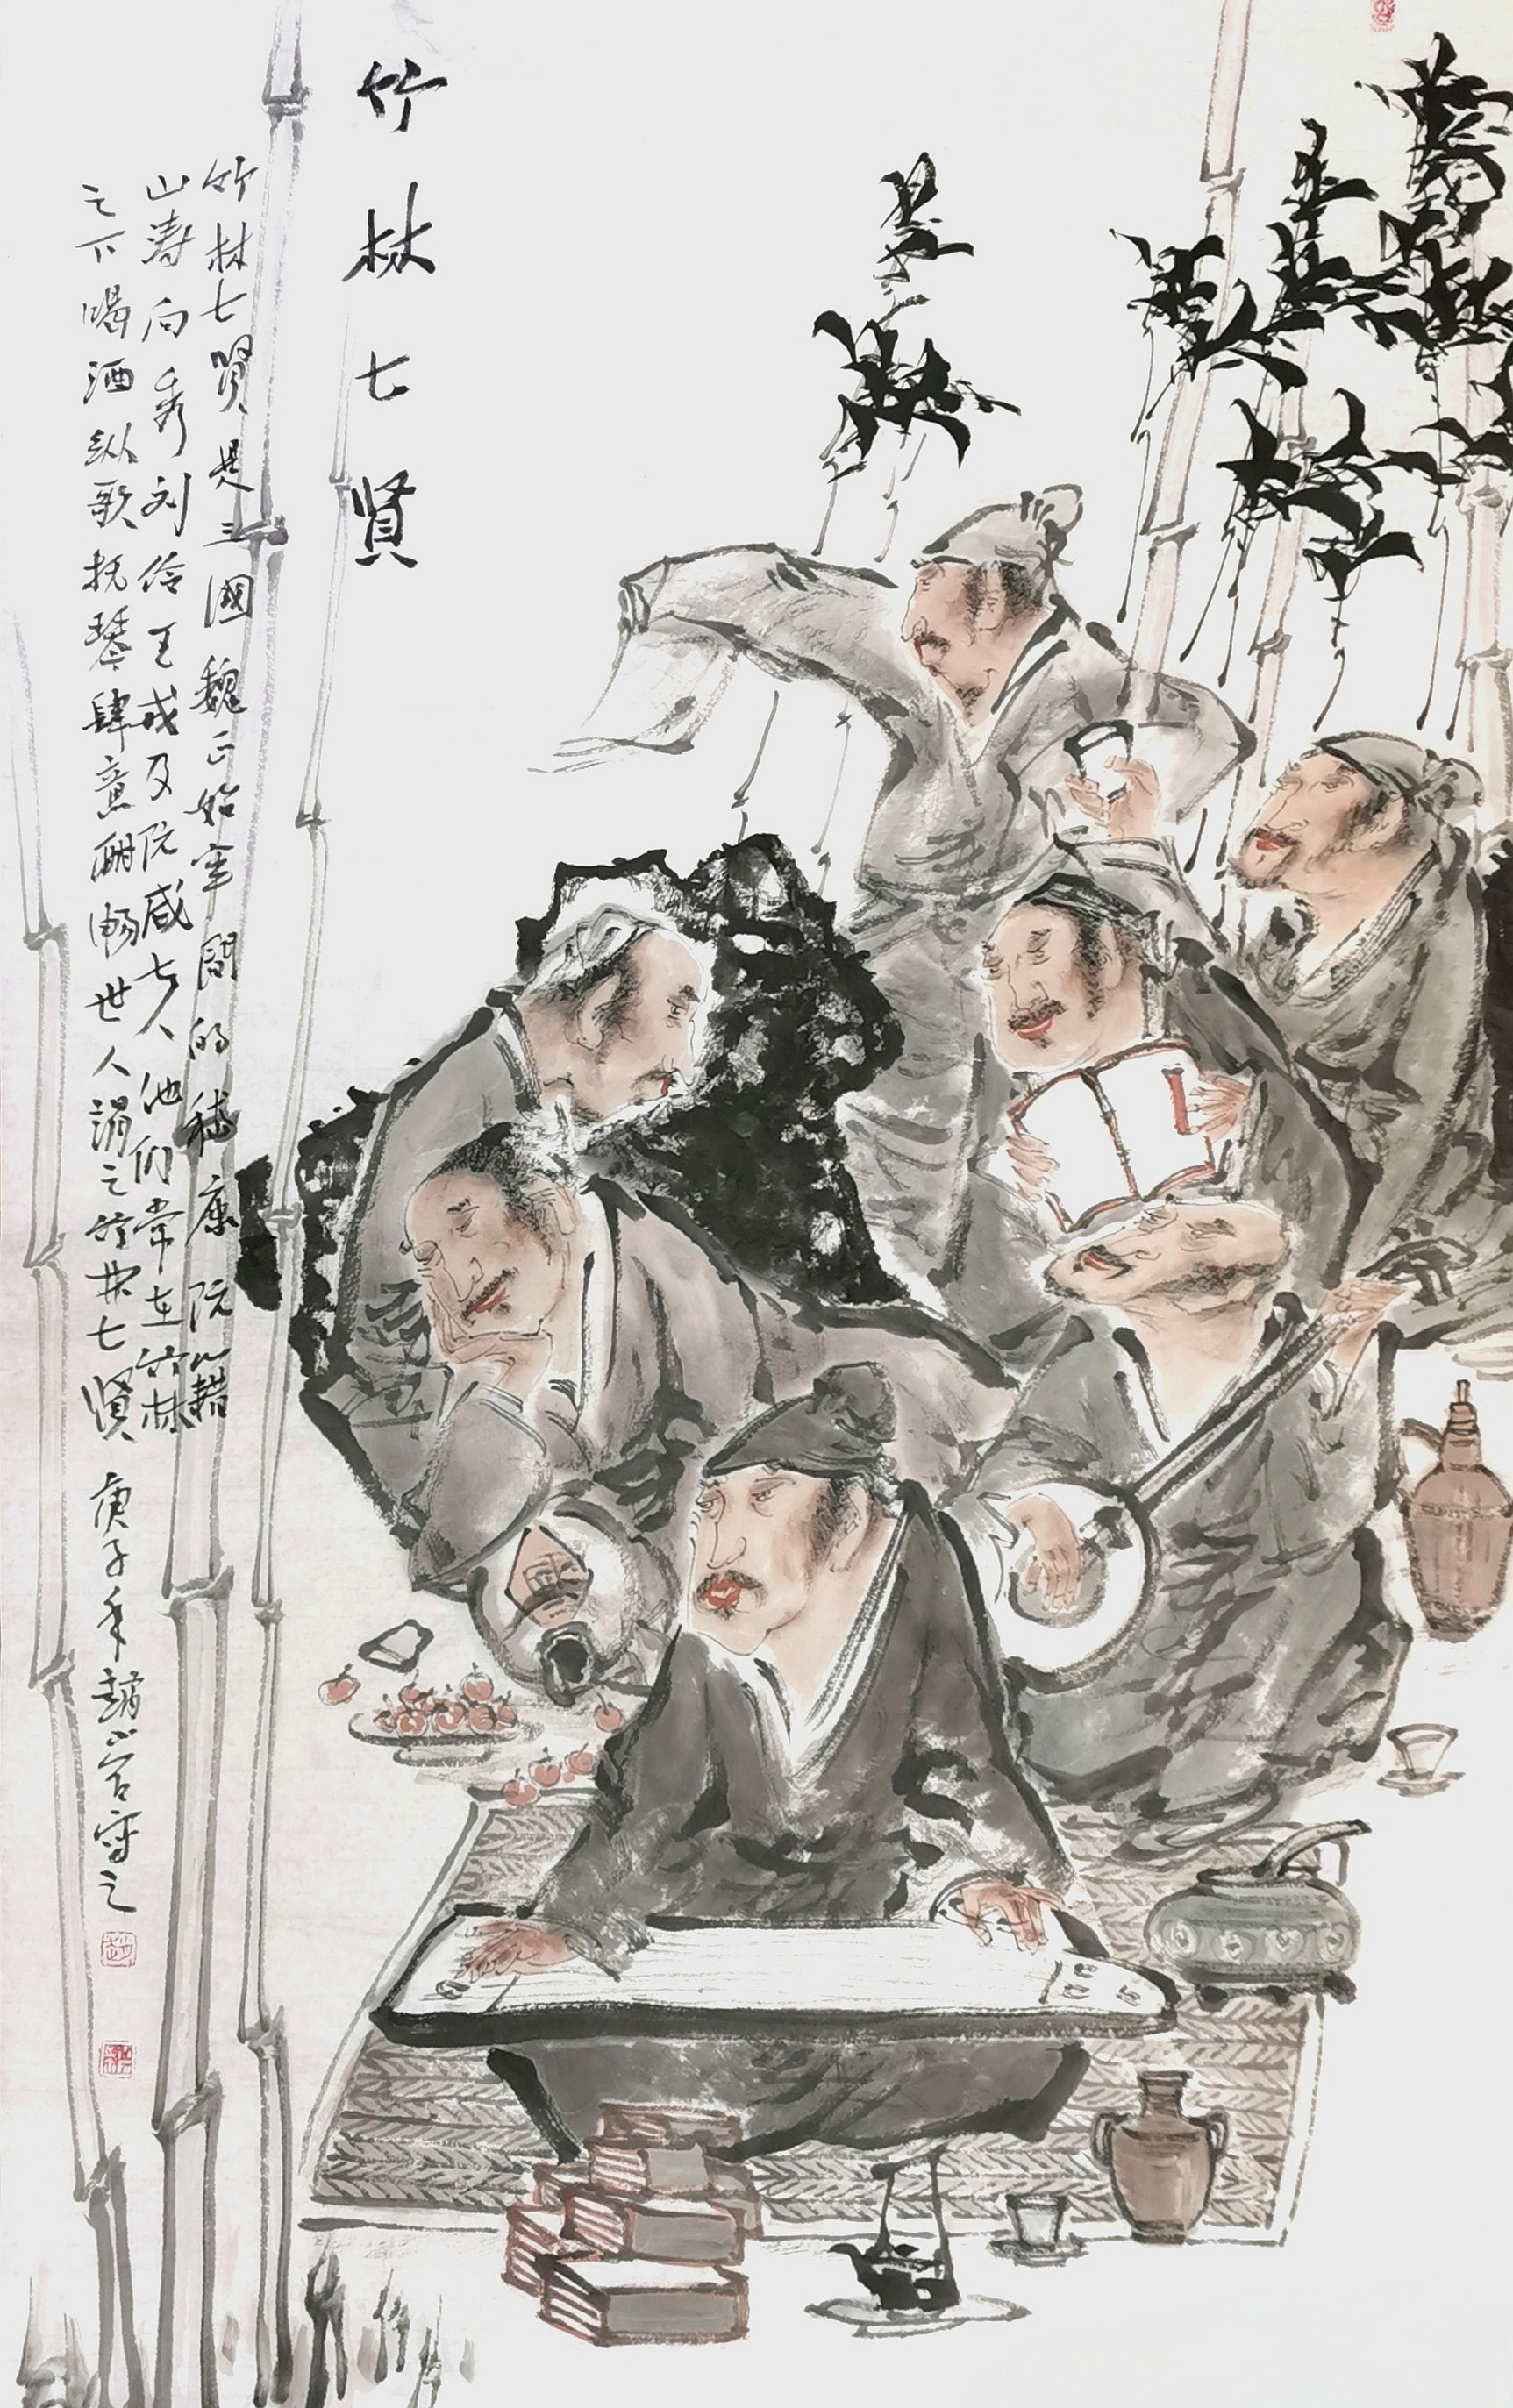 竹林七贤
竹林七贤是三國魏正始年間的嵇康阮籍
山涛向秀刘伶王戎及阮咸七人他们常在竹林
之下喝酒纵歌抚琴肆意酣畅世人謂之竹林七贤 庚子年趙